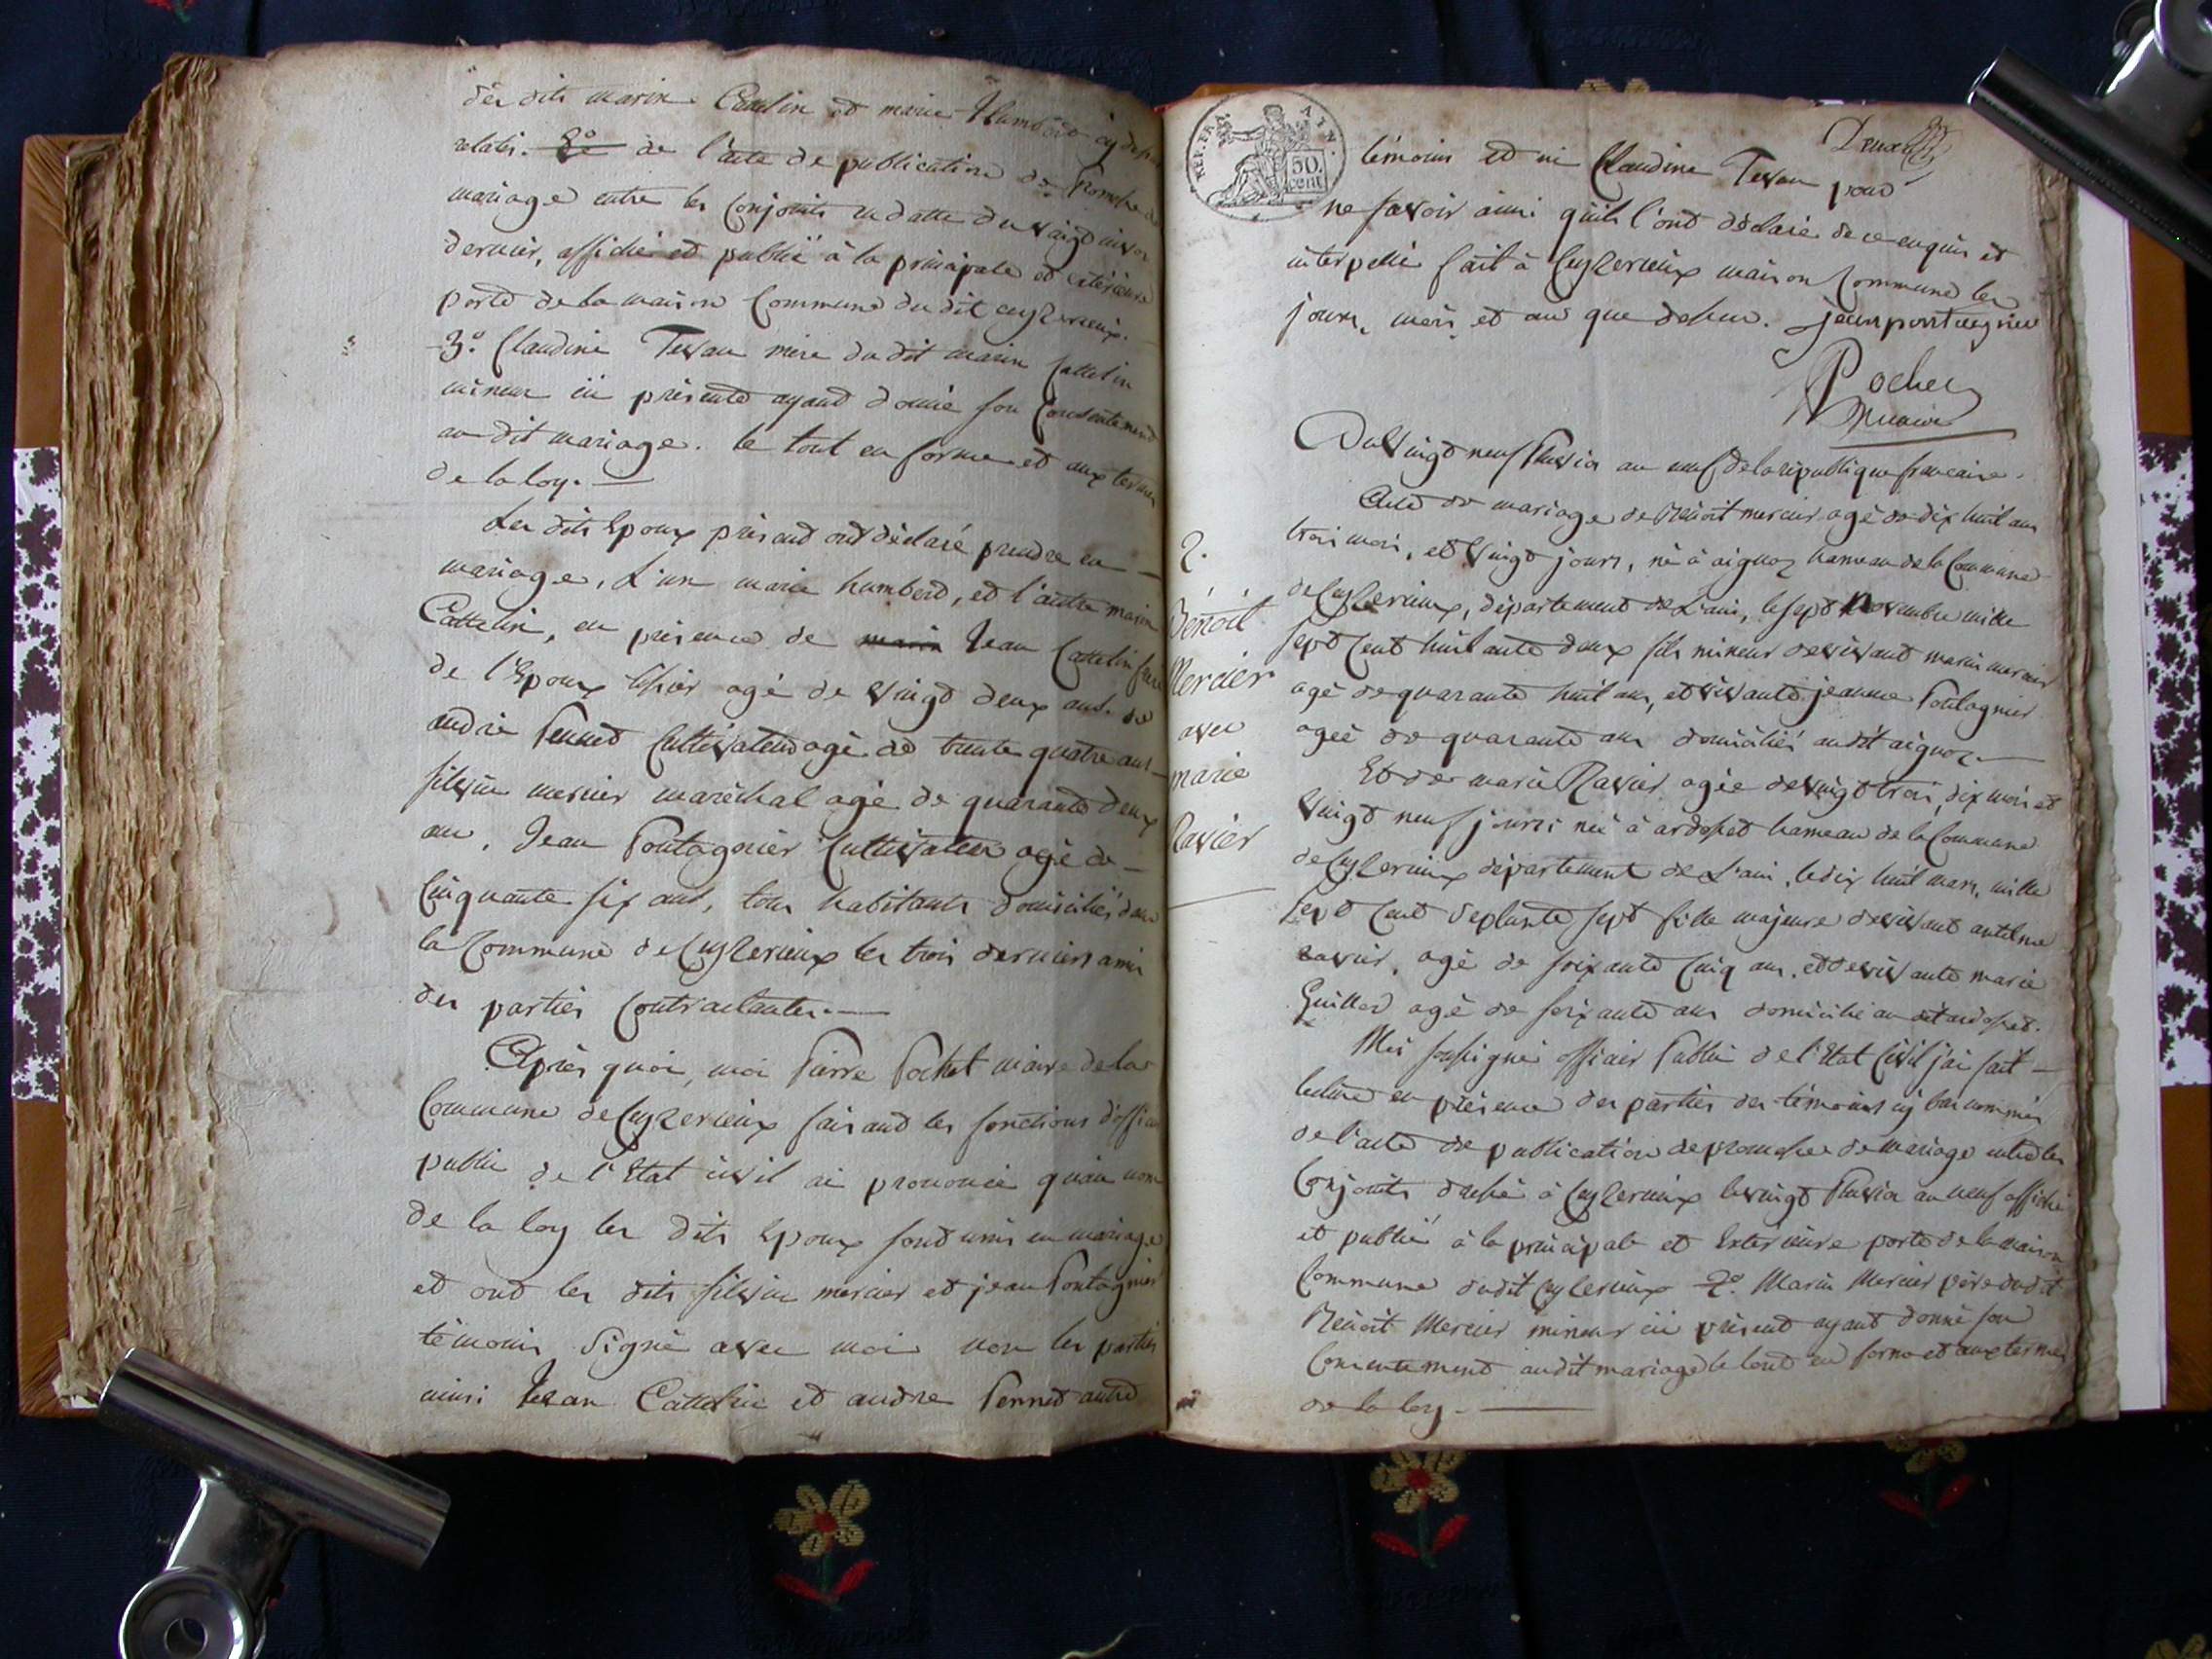 des dits marin Cattelin et marie Humberd cy dessus
relatés. 2e de l'acte de publication de promesse de
mariage entre les Conjoints en datte du vingt nivos
dernier, affiché et publié à la principale et extérieure
porte de la maison Commune du dit ceyzerieux.
3.º Claudine Tevan mère du dit marin Cattelin
mineur ici présente ayant donné son Consentement
au dit mariage. le tout en forme et aux termes
de la loy.
Les dits Epoux présent ont déclaré prendre en
mariage, L'un marie humberd, et l'autre marin
Cattelin, en présence de marin Jean Cattelin frere
de l'Epoux agé de vingt deux ans.
andré Pennet Cultivateur agé de trente quatre ans
silvin mercier maréchal agé de quarante deux
an, Jean Pontagnier Cultivateur agé de
Cinquante six ans, tous habitants domiciliés dans
la Commune de Ceyzerieux les trois derniers amis
des parties Contractantes.
Après quoi, moi Pierre Pochet maire de la
Commune de Ceyzerieux faisant les fonctions d'officier
public de l'Etat civil ai prononcé qu'au nom
de la loy les dits Epoux sont unis en mariage
et ont les dits silvin mercier et jean Pontagnier
témoins signé avec moi non les parties
ainsi Jean Cattelin et andre Pennet autre
REP. FRA. AIN.
50. cent
témoins et ni Claudine Tevan pour
ne savoir ainsi qu'ils l'ont déclaré de ce enquis et
interpellé fait à Ceyzerieux maison Commune les
jours, mois et an que dessus. jean pontagnier
Pochet
maire
Du vingt neuf Pluvios an neuf de la république francaise.
Acte de mariage de Bénoit mercier agé de dix huit ans
trois mois, et vingt jours, né à aignoz hameau de la Commune
de Ceyzerieux, département de L'ain, le sept Novembre mille
sept Cent huitante deux fils mineur de vivant marin mercier
agé de quarante huit ans, et vivante jeanne Pontagnier
agée de quarante ans domiciliés audit aignoz.
2.
Bénoit
Mercier
avec
marie
Ravier
Et de marie Ravier agée de vingt trois, dix mois et
vingt neuf jours née à ardosset hameau de la Commune
de Ceyzerieux département de L'ain, le dix huit mars, mille
sept Cent Septante sept fille majeure de vivant antelme
ravier, agé de soixante Cinq ans, et de vivante marie
Guiller agé de soixante ans domicilié au dit ardosset.
Moi soussigné officier Public de l'Etat Civil j'ai fait
lecture en présence des parties des témoins cy bas nommés
de l'acte de publication de promesse de mariage entre les
Conjoints dressé à Ceyzerieux le vingt Pluvios an neuf affiché
et publié à la principale et Extérieure porte de la maison
Commune dudit Ceyzerieux 2.º Marin Mercier père dudit
Bénoit Mercier mineur ici présent ayant donné son
Consentement audit mariage le tout en forme et aux termes
de la loy.